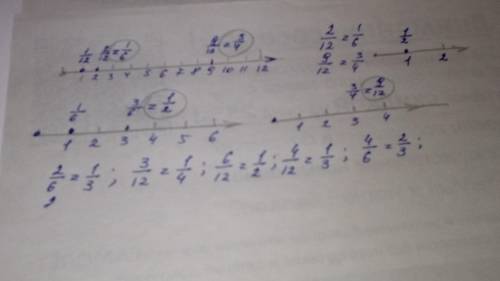 1/12 2/12 = 1/6 9/12 = 3/4
1 2 3 4 5 6 7 8 9 10 11 12
2/12 = 1/6
9/12 = 3/4
1/2
1 2
1/6 3/6 = 1/2
1 2 3 4 5 6
3/4 = 9/12
1 2 3 4
2/6 = 1/3 ; 3/12 = 1/4 ; 6/12 = 1/2 ; 4/12 = 1/3 ; 4/6 = 2/3 ;